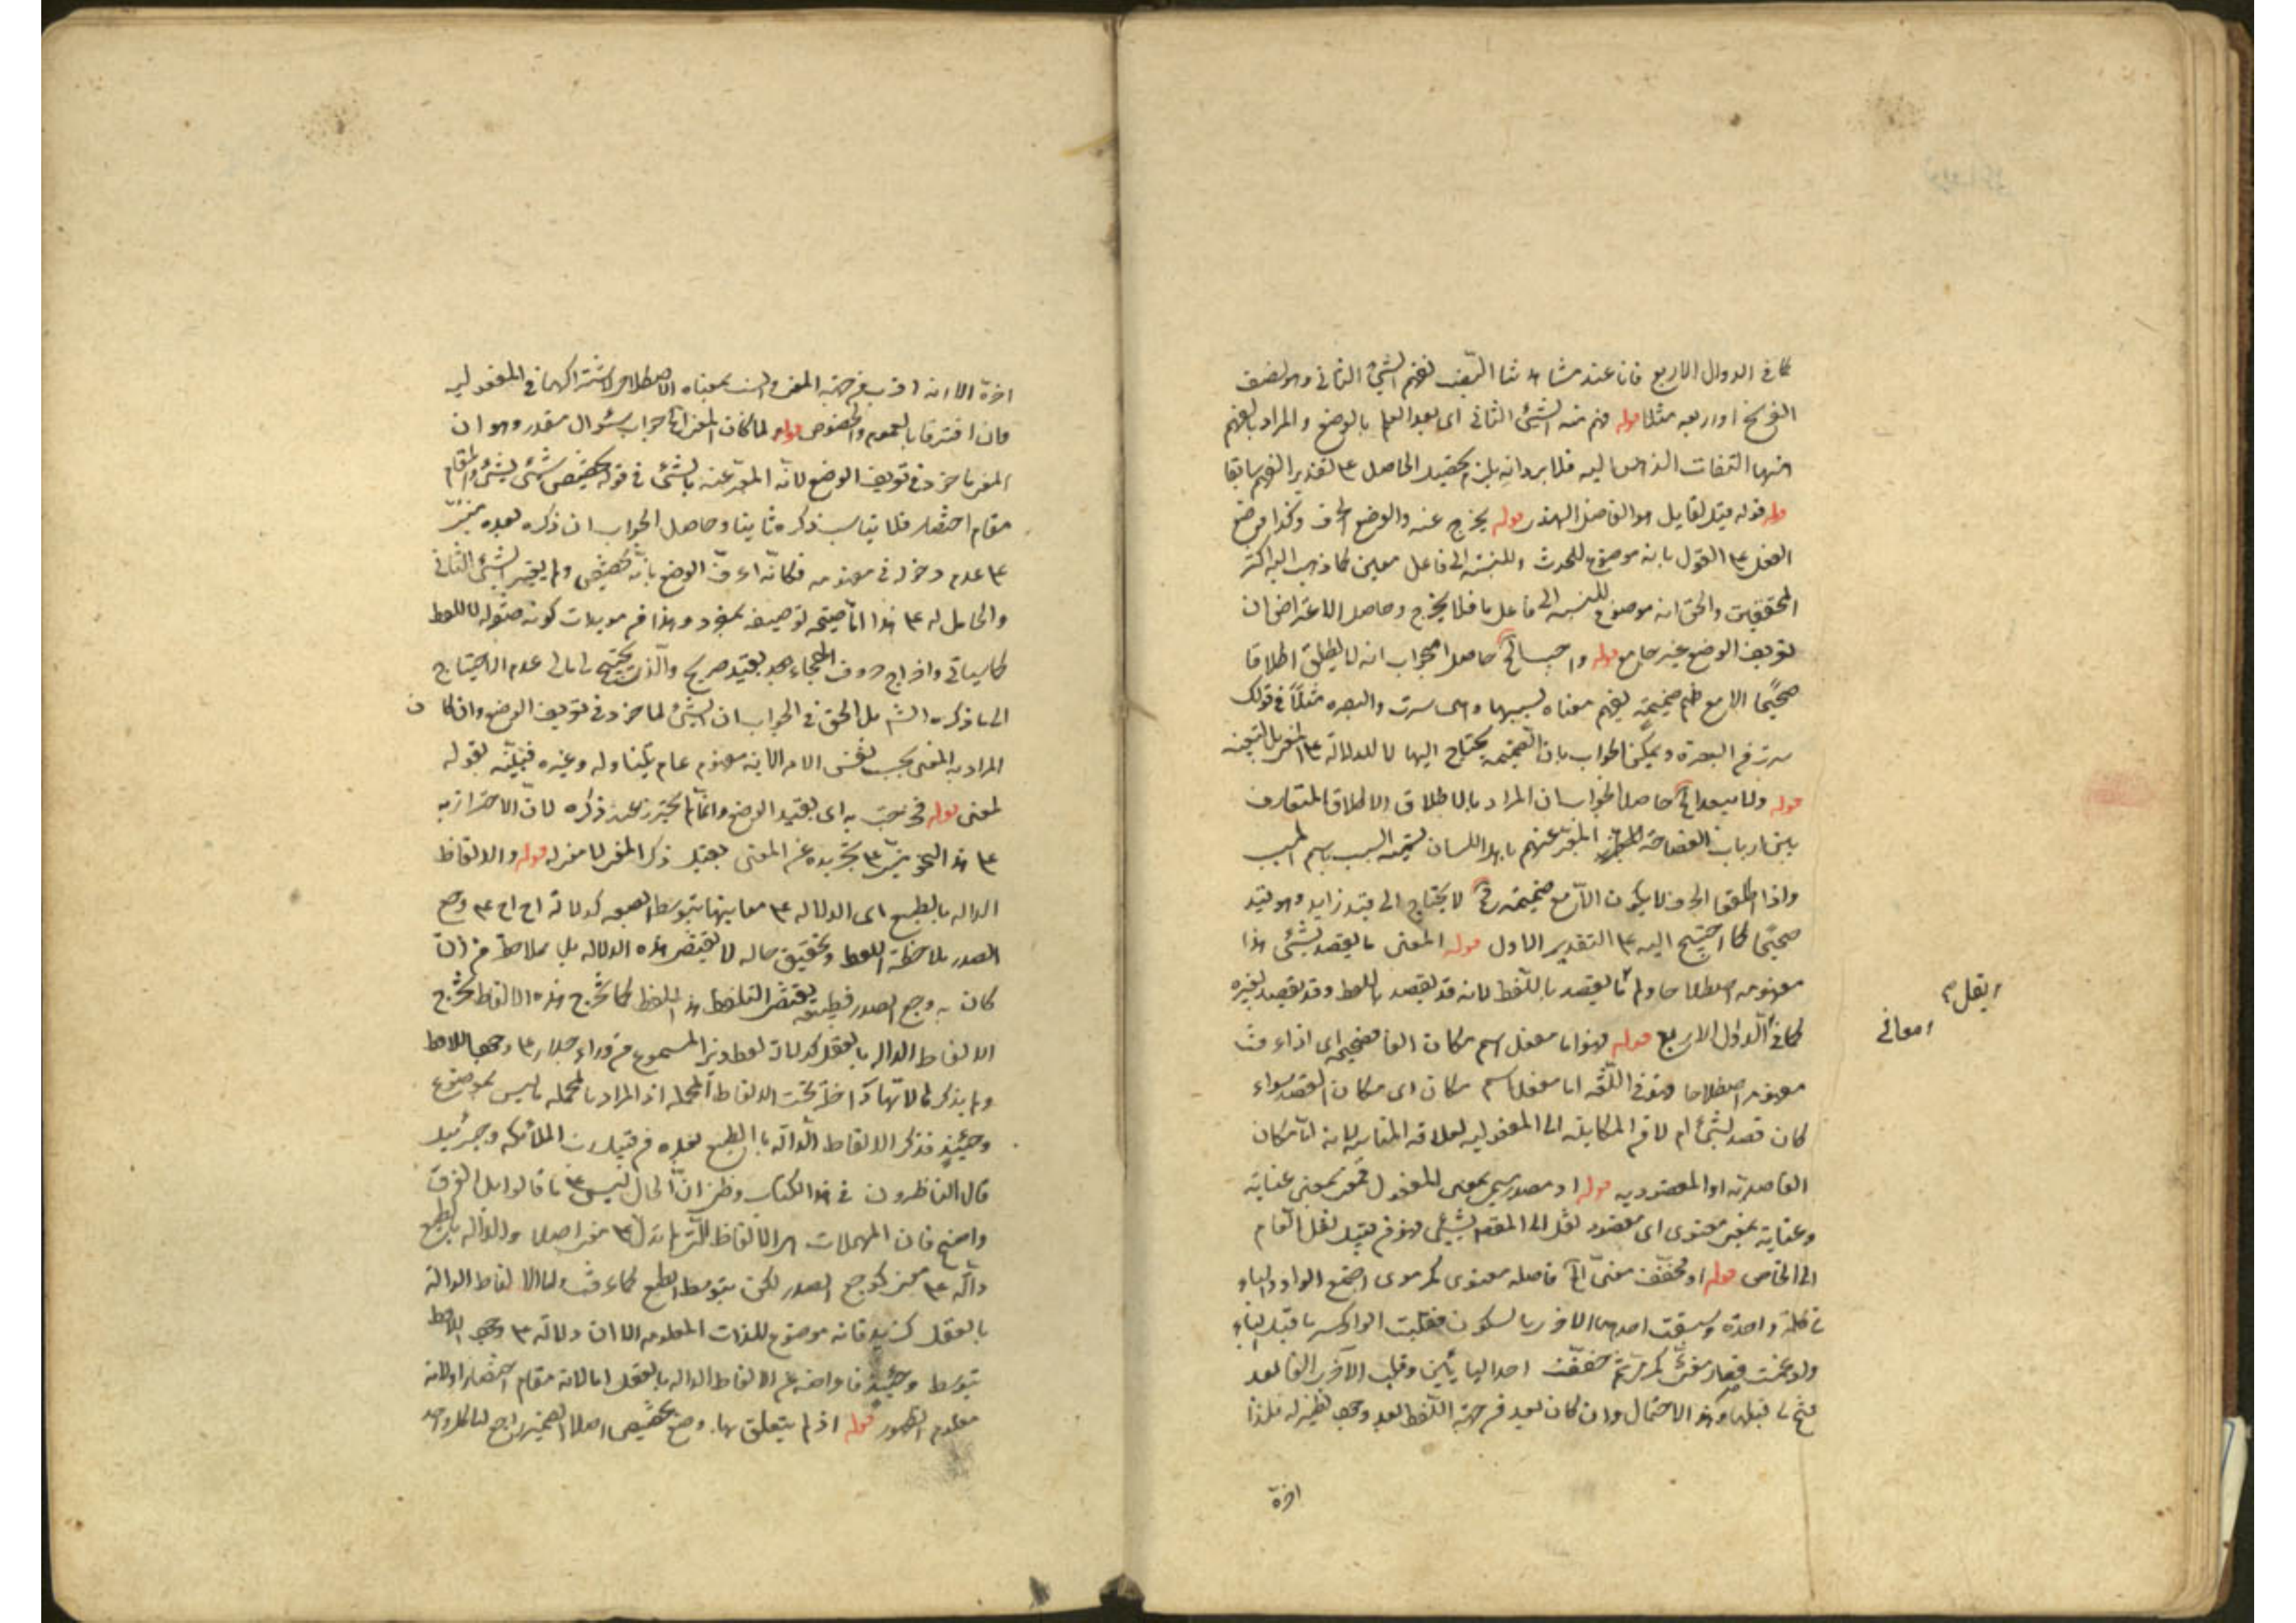 كما في الدوال الاربع فانا عند مشاهدتنا النصب نفهم الشئ الثاني وهو نصف
الفرسخ او ربعه مثلا قوله فهم منه الشئ الثاني اى بعد العلم بالوضع والمراد بالفهم
ههنا التفات الذهن اليه فلا يرد انه يلزم تحصيل الحاصل على تقدير الفهم سابقا
قوله قيل لقايل هو الفاضل الهندى قوله يخرج عنه والوضع الحرف وكذا وضع
الفعل على القول بانه موضوع للحدث وللنسبة الى فاعل معين كما ذهب اليه اكثر
المحققين والحق انه موضوع للنسبة الى فاعل ما فلا يخرج وحاصل الاعتراض ان
تعريف الوضع غير جامع قوله واجيب الخ حاصل الجواب انه لا يطلق اطلاقا
صحيحا الا مع ضم ضميمة يفهم معناه بسببها وهى سرت والبصرة مثلا في قولك
سرت من البصرة ويمكن الجواب بان الضميمة يحتاج اليها لا للدلالة على المعنى بل
قوله ولا يبعد الخ حاصل الجواب ان المراد بالاطلاق الاطلاق المتعارف
بين ارباب الفصاحة المعبر عنهم باهل اللسان تسمية السبب باسم المسبب
واذا اطلقوا الحرف لا يكون الا مع ضميمة لا يحتاج الى قيد زايد وهو قيد
صحيحا كما احتيج اليه على التقدير الاول قوله المعنى ما يقصد بشئ هذا
مفهومه اصطلاحا ولم ما يقصد باللفظ لانه قد يقصد باللفظ وقد يقصد بغيره
كما في الدوال الاربع قوله فهو اما مفعل اسم مكان الفا فصيحة اى اذا عرفت
مفهومه اصطلاحا فهو في اللغة اما مفعل اسم مكان اى مكان القصد سواء
كان قصد بشئ ام لا
القاصدية او المقصودية قوله او مصدر ميمى بمعنى المفعول فمعنى بمعنى عناية
وعناية بمعنى معنوى اى مقصود نقل الى المقصد بشئ فهو من قبيل نقل العام
الى الخاص قوله او مخفف معنى الخ فاصله معنوى كمرموى اجتمع الواو والياء
في كلمة واحدة وسبقت احدهما الاخرى بالسكون فقلبت الواو كسر ما قبل الياء
وادغمت فصار معنى كمرمى ثم خففت احد اليايين وقلب الآخر الفا بعد
فتح ما قبلها وهذا الاحتمال وان كان بعيد من جهة اللفظ لعدم نظير له فلذا
اخره
لم يقل
معانى
اخره الا انه اقرب من جهة المعنى بمعناه الاصطلاحى لاشتراكهما في المفعولية
وان افترقا بالعموم والخصوص قوله ولما كان المعنى الخ جواب سؤال مقدر وهو ان
المعنى ماخوذ في تعريف الوضع لانه المعبر عنه بالشئ في قوله تخصيص شئ بشئ والمقام
مقام اختصار فلا يناسب ذكره ثانيا وحاصل الجواب ان ذكره بعده مبنى
على عدم دخوله في مفهومه فكانه عرف الوضع بانه تخصيص ولم يعتبر الشئ الثاني
والحامل له على هذا توصيفه بمفرد وهذا من مويدات كونه صفة للفظ
كما سياتى واخراج حروف الهجاء بعد بقيد صريح والذى عدم الاحتياج
الى ما ذكره بل الحق في الجواب ان الشئ لما خوذ في تعريف الوضع وان كان
المراد به المعنى بحسب نفس الامر الا انه مفهوم عام يتناوله وغيره فبينه بقوله
لمعنى قوله فخرجت به اى بقيد الوضع وانما لم يحترز عند ذكره لان الاحتراز به
على هذا تجريده عن المعنى بقيد ذكر المعنى لا معزله قوله والالفاظ
الدالة بالطبع اى الدلالة على معانيها بتوسط الطبع كدلالة اح اح على وجع
الصدر بملاحظة اللفظ وتحقيق حاله لا يقتضى هذه الدلالة بل بملاحظة من ان
كان به وجع الصدر فطبعه يقتضى التلفظ بهذا اللفظ كما تخرج هذه الالفاظ تخرج
الالفاظ الدالة بالعقل كدلالة لفظ ديز المسموع من وراء جدار على وجود اللافظ
ولم يذكر تحت الالفاظ المهملة اذ المراد بالمهملة ما ليس بموضوع
وحينئذ فذكر الالفاظ الدالة بالطبع بعده من قبيل الملائكة وجبرئيل
قال الناظرون في هذا الكتاب وظنى ان الحال ليس على ما قالوا بل الفرق
واضح فان المهملات هى الالفاظ التى لم تدل على معنى اصلا والدالة بالطبع
دالة على معنى كوجع الصدر لكن بتوسط الطبع كما عرفت واما الالفاظ الدالة
بالعقل كزيد فانه موضوع للذات المعلومة الا ان دلالته على وجود اللافظ
بتوسط وحينئذ فاعراضه عن الالفاظ الدالة بالعقل اما لانه مقام اختصار او لانه
معلوم الظهور قوله اذ لم يتعلق بها وضع تخصيص اصلا الضمير راجع الى كل واحد